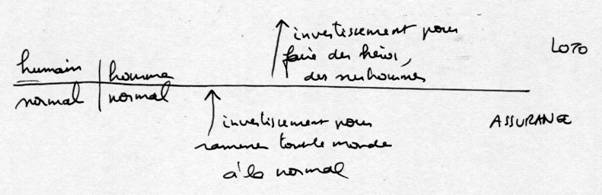 investissement pour
faire des héros,
des surhommes
LOTO
humain | homme
normal | normal
investissement pour
ramener tout le monde
à la normal
ASSURANCE